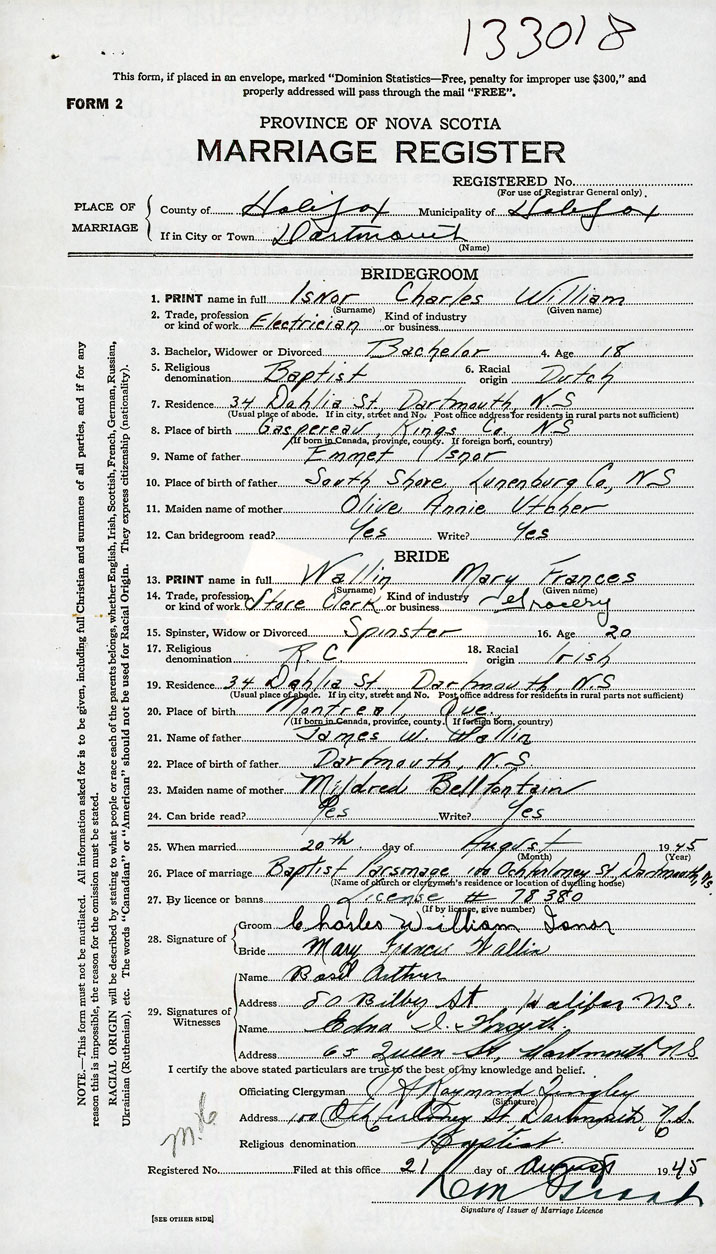 133018
This form, if placed in an envelope, marked "Dominion Statistics—Free, penalty for improper use $300," and
properly addressed will pass through the mail "FREE".
FORM 2
PROVINCE OF NOVA SCOTIA
MARRIAGE REGISTER
REGISTERED No.
(For use of Registrar General only)
PLACE OF MARRIAGE
County of Halifax Municipality of Halifax
If in City or Town Dartmouth
(Name)
BRIDEGROOM
1. PRINT name in full Isnor Charles William
(Surname) (Given name)
2. Trade, profession or kind of work Electrician Kind of industry or business
3. Bachelor, Widower or Divorced Bachelor 4. Age 18
5. Religious denomination Baptist 6. Racial origin Dutch
7. Residence 34 Dahlia St, Dartmouth, N-S
(Usual place of abode. If in city, street and No. Post office address for residents in rural parts not sufficient)
8. Place of birth Gaspereau Kings Co, NS
(If born in Canada, province, county. If foreign born, country)
9. Name of father Emmet Isnor
10. Place of birth of father South Shore, Lunenburg Co, NS
11. Maiden name of mother Olive Annie
12. Can bridegroom read? Yes Write? Yes
BRIDE
13. PRINT name in full Wallin Mary Frances
(Surname) (Given name)
14. Trade, profession or kind of work Store Clerk Kind of industry or business Grocery
15. Spinster, Widow or Divorced Spinster 16. Age 20
17. Religious denomination R C 18. Racial origin Irish
19. Residence 34 Dahlia St Dartmouth, N.S
(Usual place of abode. If in city, street and No. Post office address for residents in rural parts not sufficient)
20. Place of birth Montreal, Que.
(If born in Canada, province, county. If foreign born, country)
21. Name of father James W. Wallin
22. Place of birth of father Dartmouth, N.S.
23. Maiden name of mother Mildred Bellfontain
24. Can bride read? Yes Write? Yes
25. When married 20th. day of August 1945
(Month) (Year)
26. Place of marriage Baptist Parsonage 100 Ochterloney St, Dartmouth, NS.
(Name of church or clergyman's residence or location of dwelling house)
27. By licence or banns License # 78380
(If by licence, give number)
28. Signature of
Groom Charles William Isnor
Bride Mary Francis Wallin
29. Signatures of Witnesses
Name Basil Arthur
Address 80 Bilby St. Halifax N.S.
Name Edna I. Forsyth.
Address 65 Queen St, Dartmouth N.S.
I certify the above stated particulars are true to the best of my knowledge and belief.
Officiating Clergyman Raymond
(Signature)
Address 100 Ochterloney St, Dartmouth, N.S.
Religious denomination Baptist.
Registered No. Filed at this office 21 day of August 1945
Signature of Issuer of Marriage Licence
[SEE OTHER SIDE]
NOTE.—This form must not be mutilated. All information asked for is to be given, including full Christian and surnames of all parties, and if for any
reason this is impossible, the reason for the omission must be stated.
RACIAL ORIGIN will be described by stating to what people or race each of the parents belongs, whether English, Irish, Scottish, French, German, Russian,
Ukrainian (Ruthenian), etc. The words "Canadian" or "American" should not be used for Racial Origin. They express citizenship (nationality).